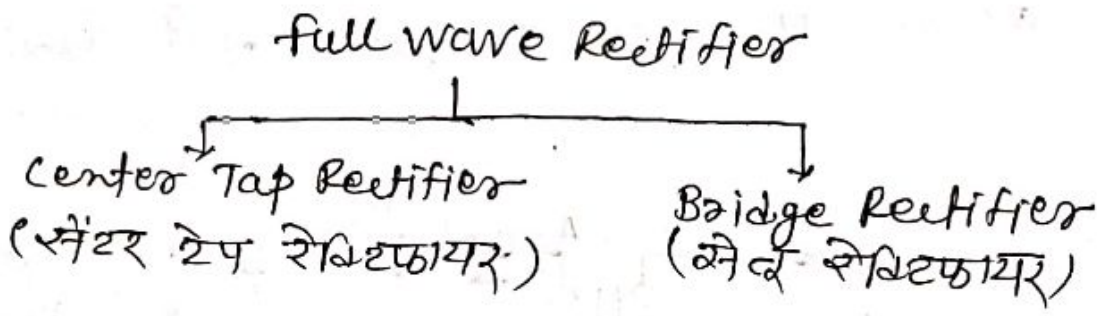 full wave Rectifier
Center Tap Rectifier
(सेंटर टेप रेक्टिफायर)
Bridge Rectifier
(सेतु रेक्टिफायर)